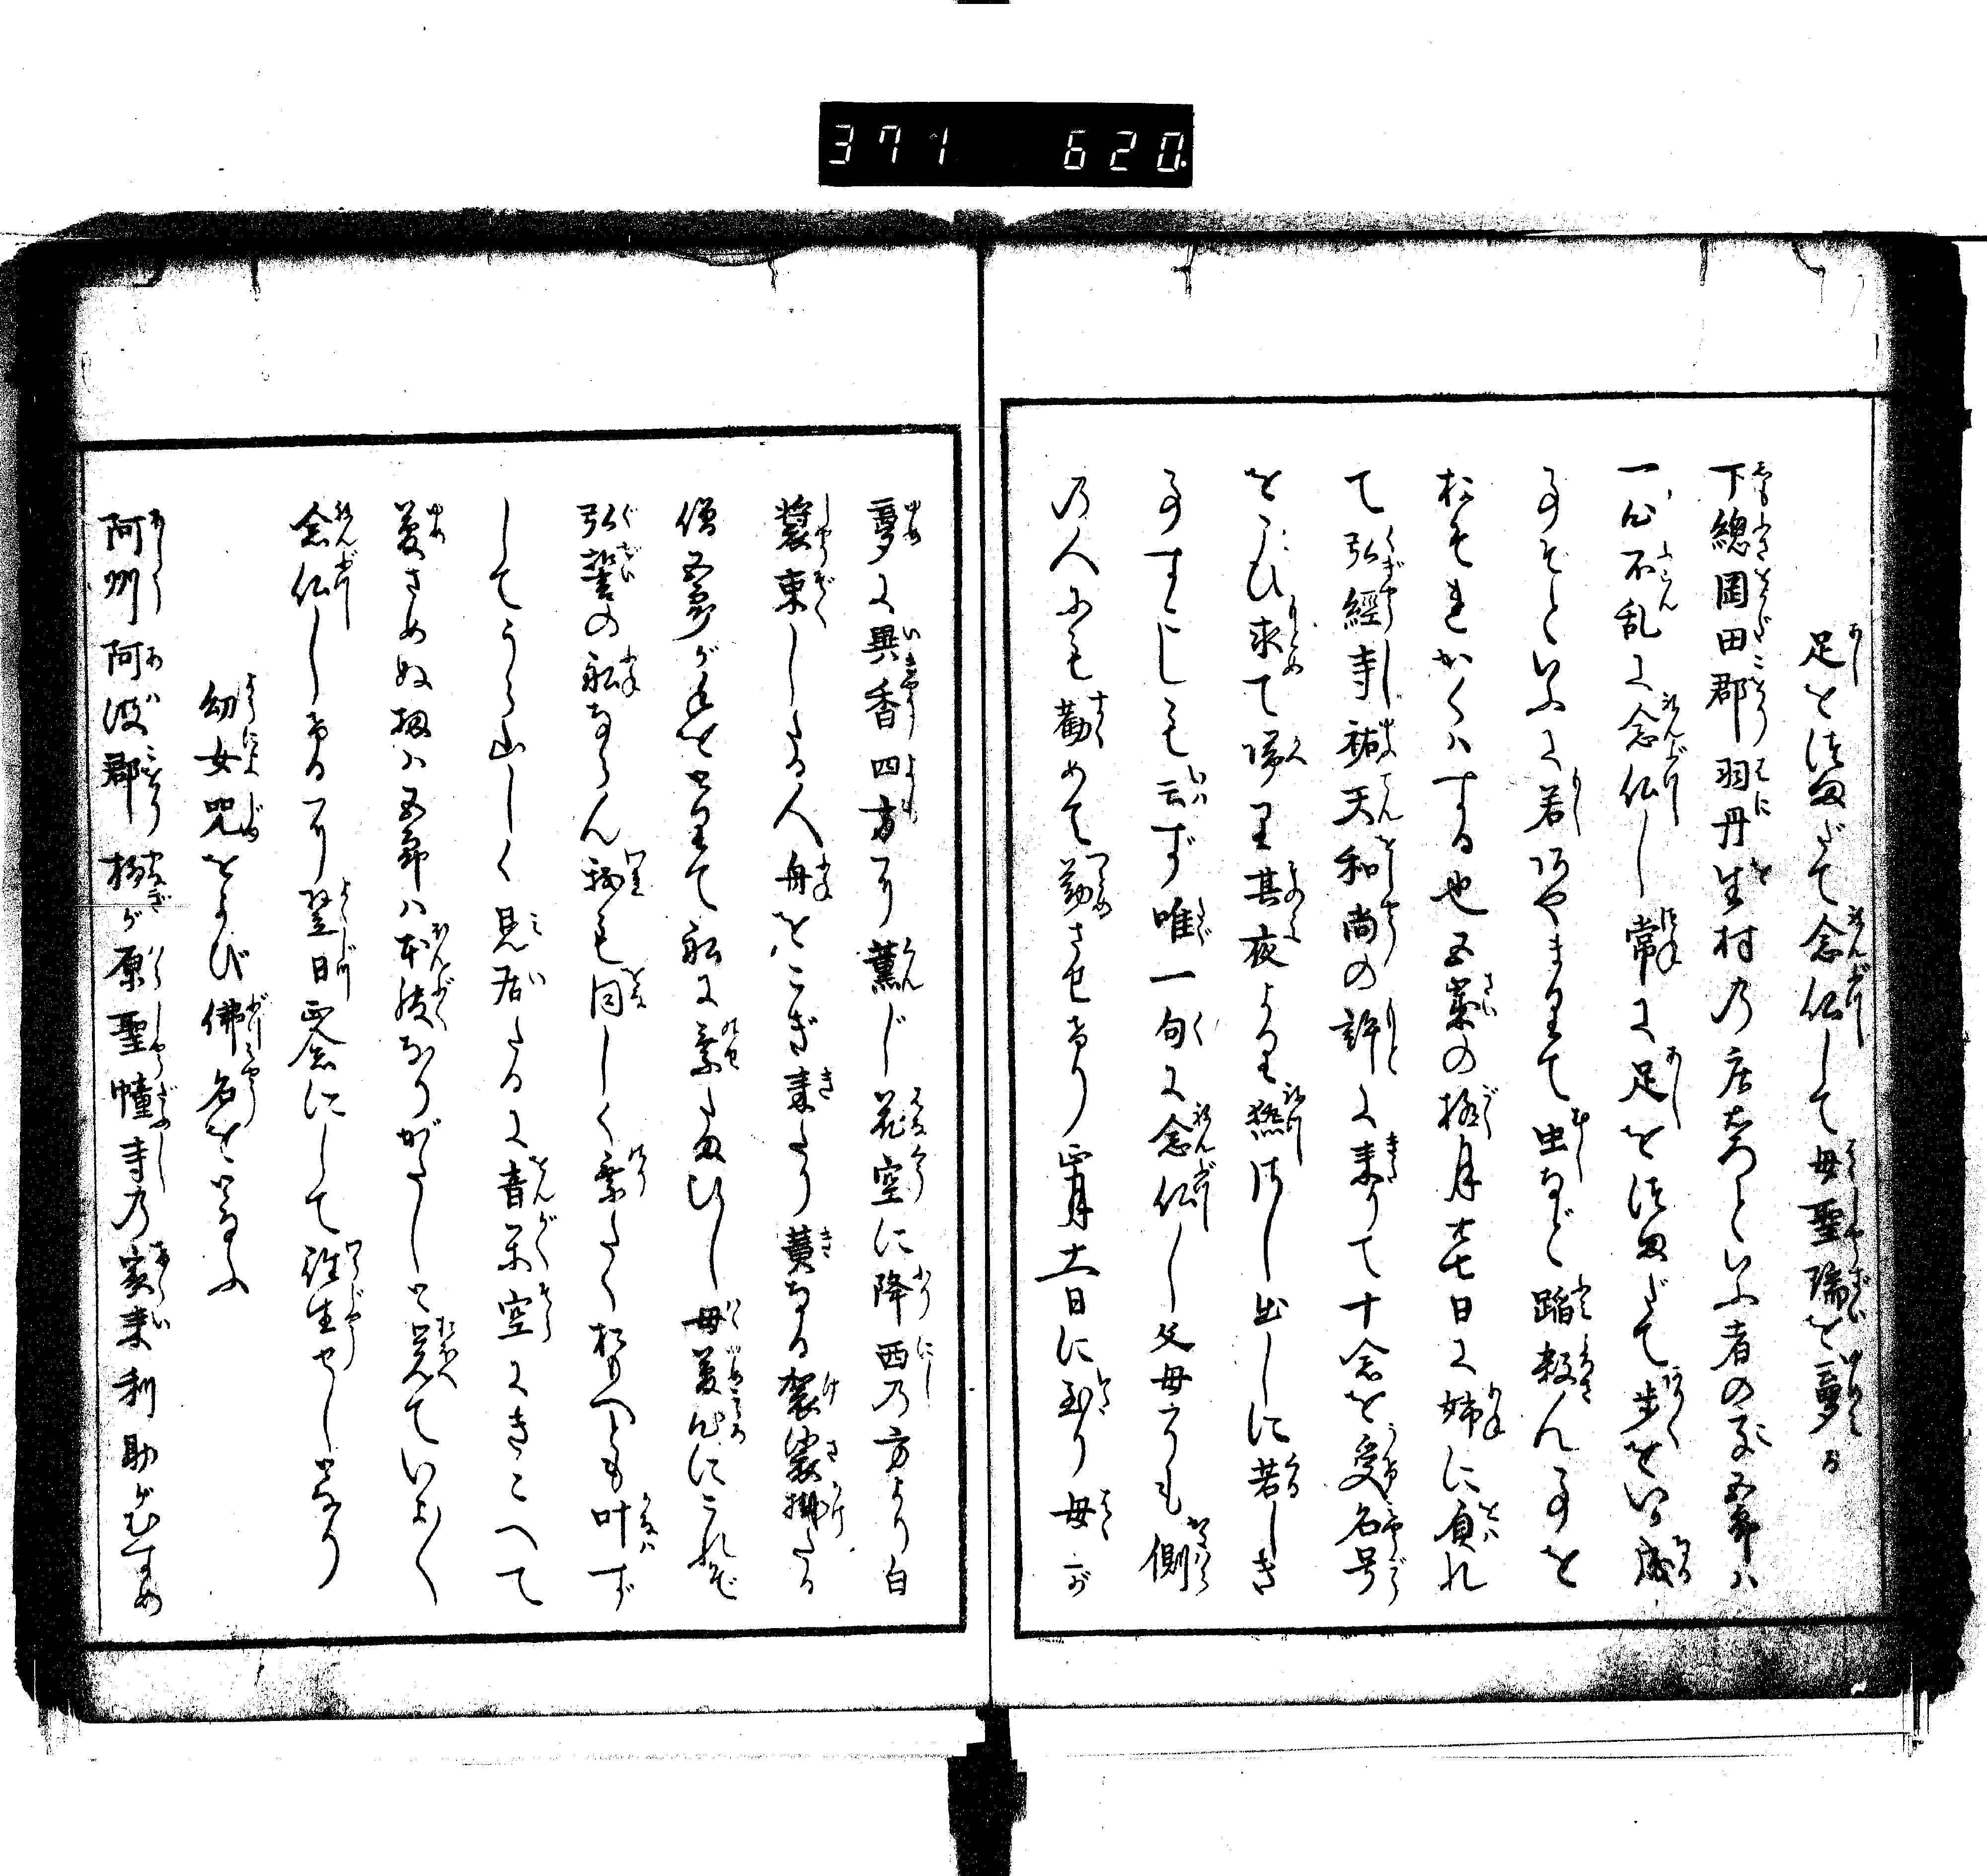 371 620
足をつまだて念仏して母聖瑞を夢る
下總岡田郡羽丹生村乃庄右衛門といふ者の子五郎ハ
一心不乱に念仏し常に足をつまだて歩をいる故
事ぞといふに若あやまりて虫など踏殺ん事を
おそれかくハする也五歳の極月廿七日に姉に負れ
て弘經寺祐天和尚の許に来りて十念を受名号
をこひ求て帰り其夜より熱けし出しに苦しき
事すこしも云ず唯一句に念仏し父母うも側
乃人にも勧めて勤させけり正月十一日に至り母が
夢に異香四方に薫じ花空に降西乃方より白
装束したる人舟をこぎ来たり黄なる袈裟掛たる
僧五郎が手をとりて船に乗たまひし母夢心にこれぞ
弘誓の船ならん我も同しく乗たくおもへども叶ず
してうら山しく見居たるに音楽空にきこへて
夢さめぬ扨ハ五郎ハ本復なりがたしと覚ていよ〱
念仏しける可翌日正念にして往生せしとなり
幼女咒をよび佛名をとなふ
阿州阿波郡柳が原聖幢寺乃家来利助がむすめ